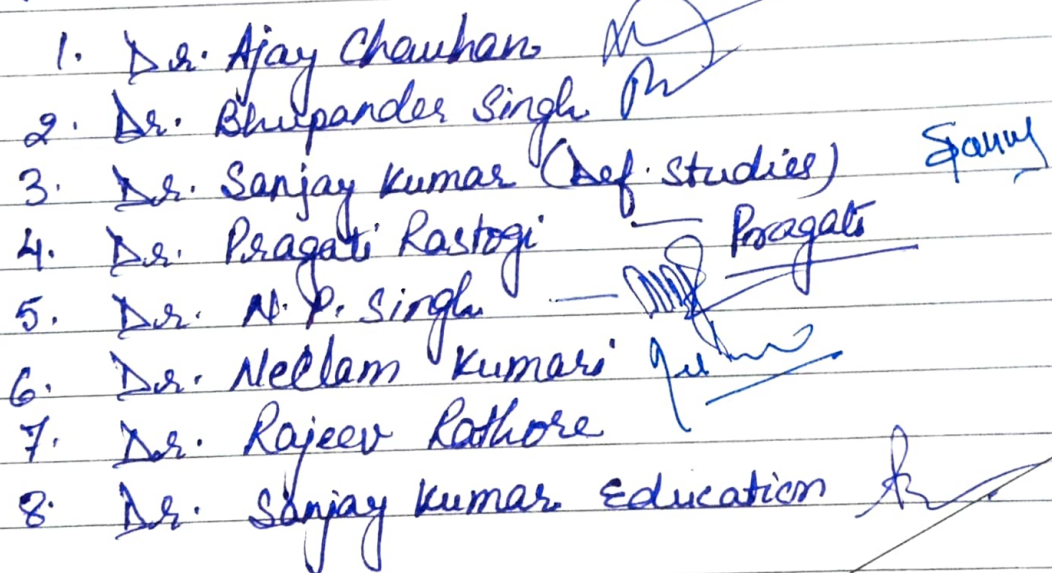 1. Dr. Ajay Chauhan
2. Dr. Bhupander Singh
3. Dr. Sanjay Kumar (Def. Studies)
4. Dr. Pragati Rastogi — Pragati
5. Dr. N. P. Singh —
6. Dr. Neelam Kumari
7. Dr. Rajeev Rathore
8. Dr. Sanjay Kumar Education